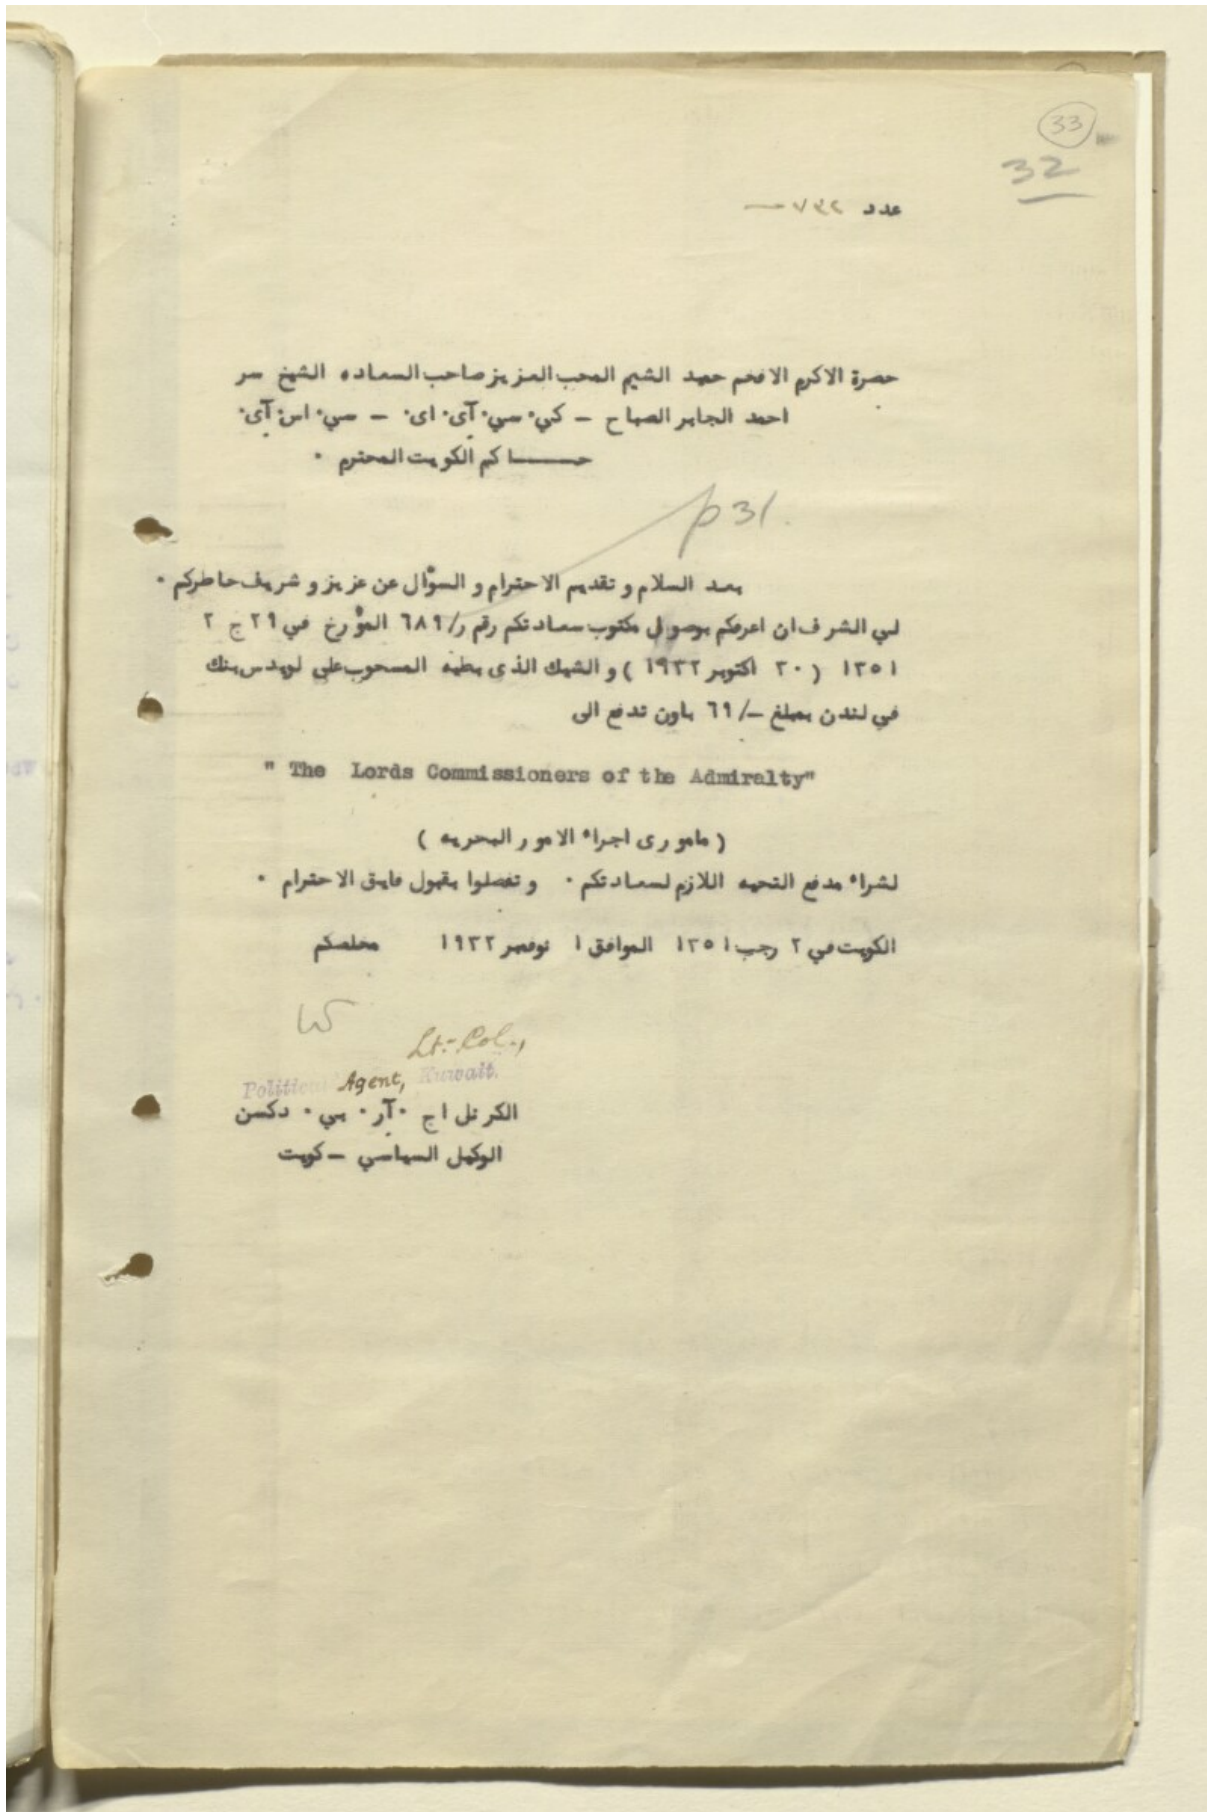 33
32
عدد ٧٣٢
حضرة الاكرم الافخم حميد الشيم المحب العزيز صاحب السعاده الشيخ سر
احمد الجابر الصباح – كي٠ سي٠ آى٠ اى٠ – سي٠ اس٠ آى٠
حـــــاكم الكويت المحترم ٠
p 31.
بعد السلام و تقديم الاحترام و السؤال عن عزيز و شريف خاطركم ٠
لي الشرف ان اعرفكم بوصولي مكتوب سعادتكم رقم ر/٦٨٩ المؤرخ في ٢٩ ج ٢
١٣٥١ ( ٣٠ اكتوبر ١٩٣٢ ) و الشيك الذى بطيه المسحوب على لويدس بنك
في لندن بمبلغ –/٦٩ باون تدفع الى
" The Lords Commissioners of the Admiralty"
( مامورى اجراء الامور البحريه )
لشراء مدفع التحيه اللازم لسعادتكم ٠ و تفضلوا بقبول فايق الاحترام ٠
الكويت في ٢ رجب ١٣٥١ الموافق ١ نوفمبر ١٩٣٢ مخلصكم
Lt.-Col.,
Political Agent, Kuwait.
الكرنل اج ٠ آر ٠ بي ٠ دكسن
الوكيل السياسي – كويت